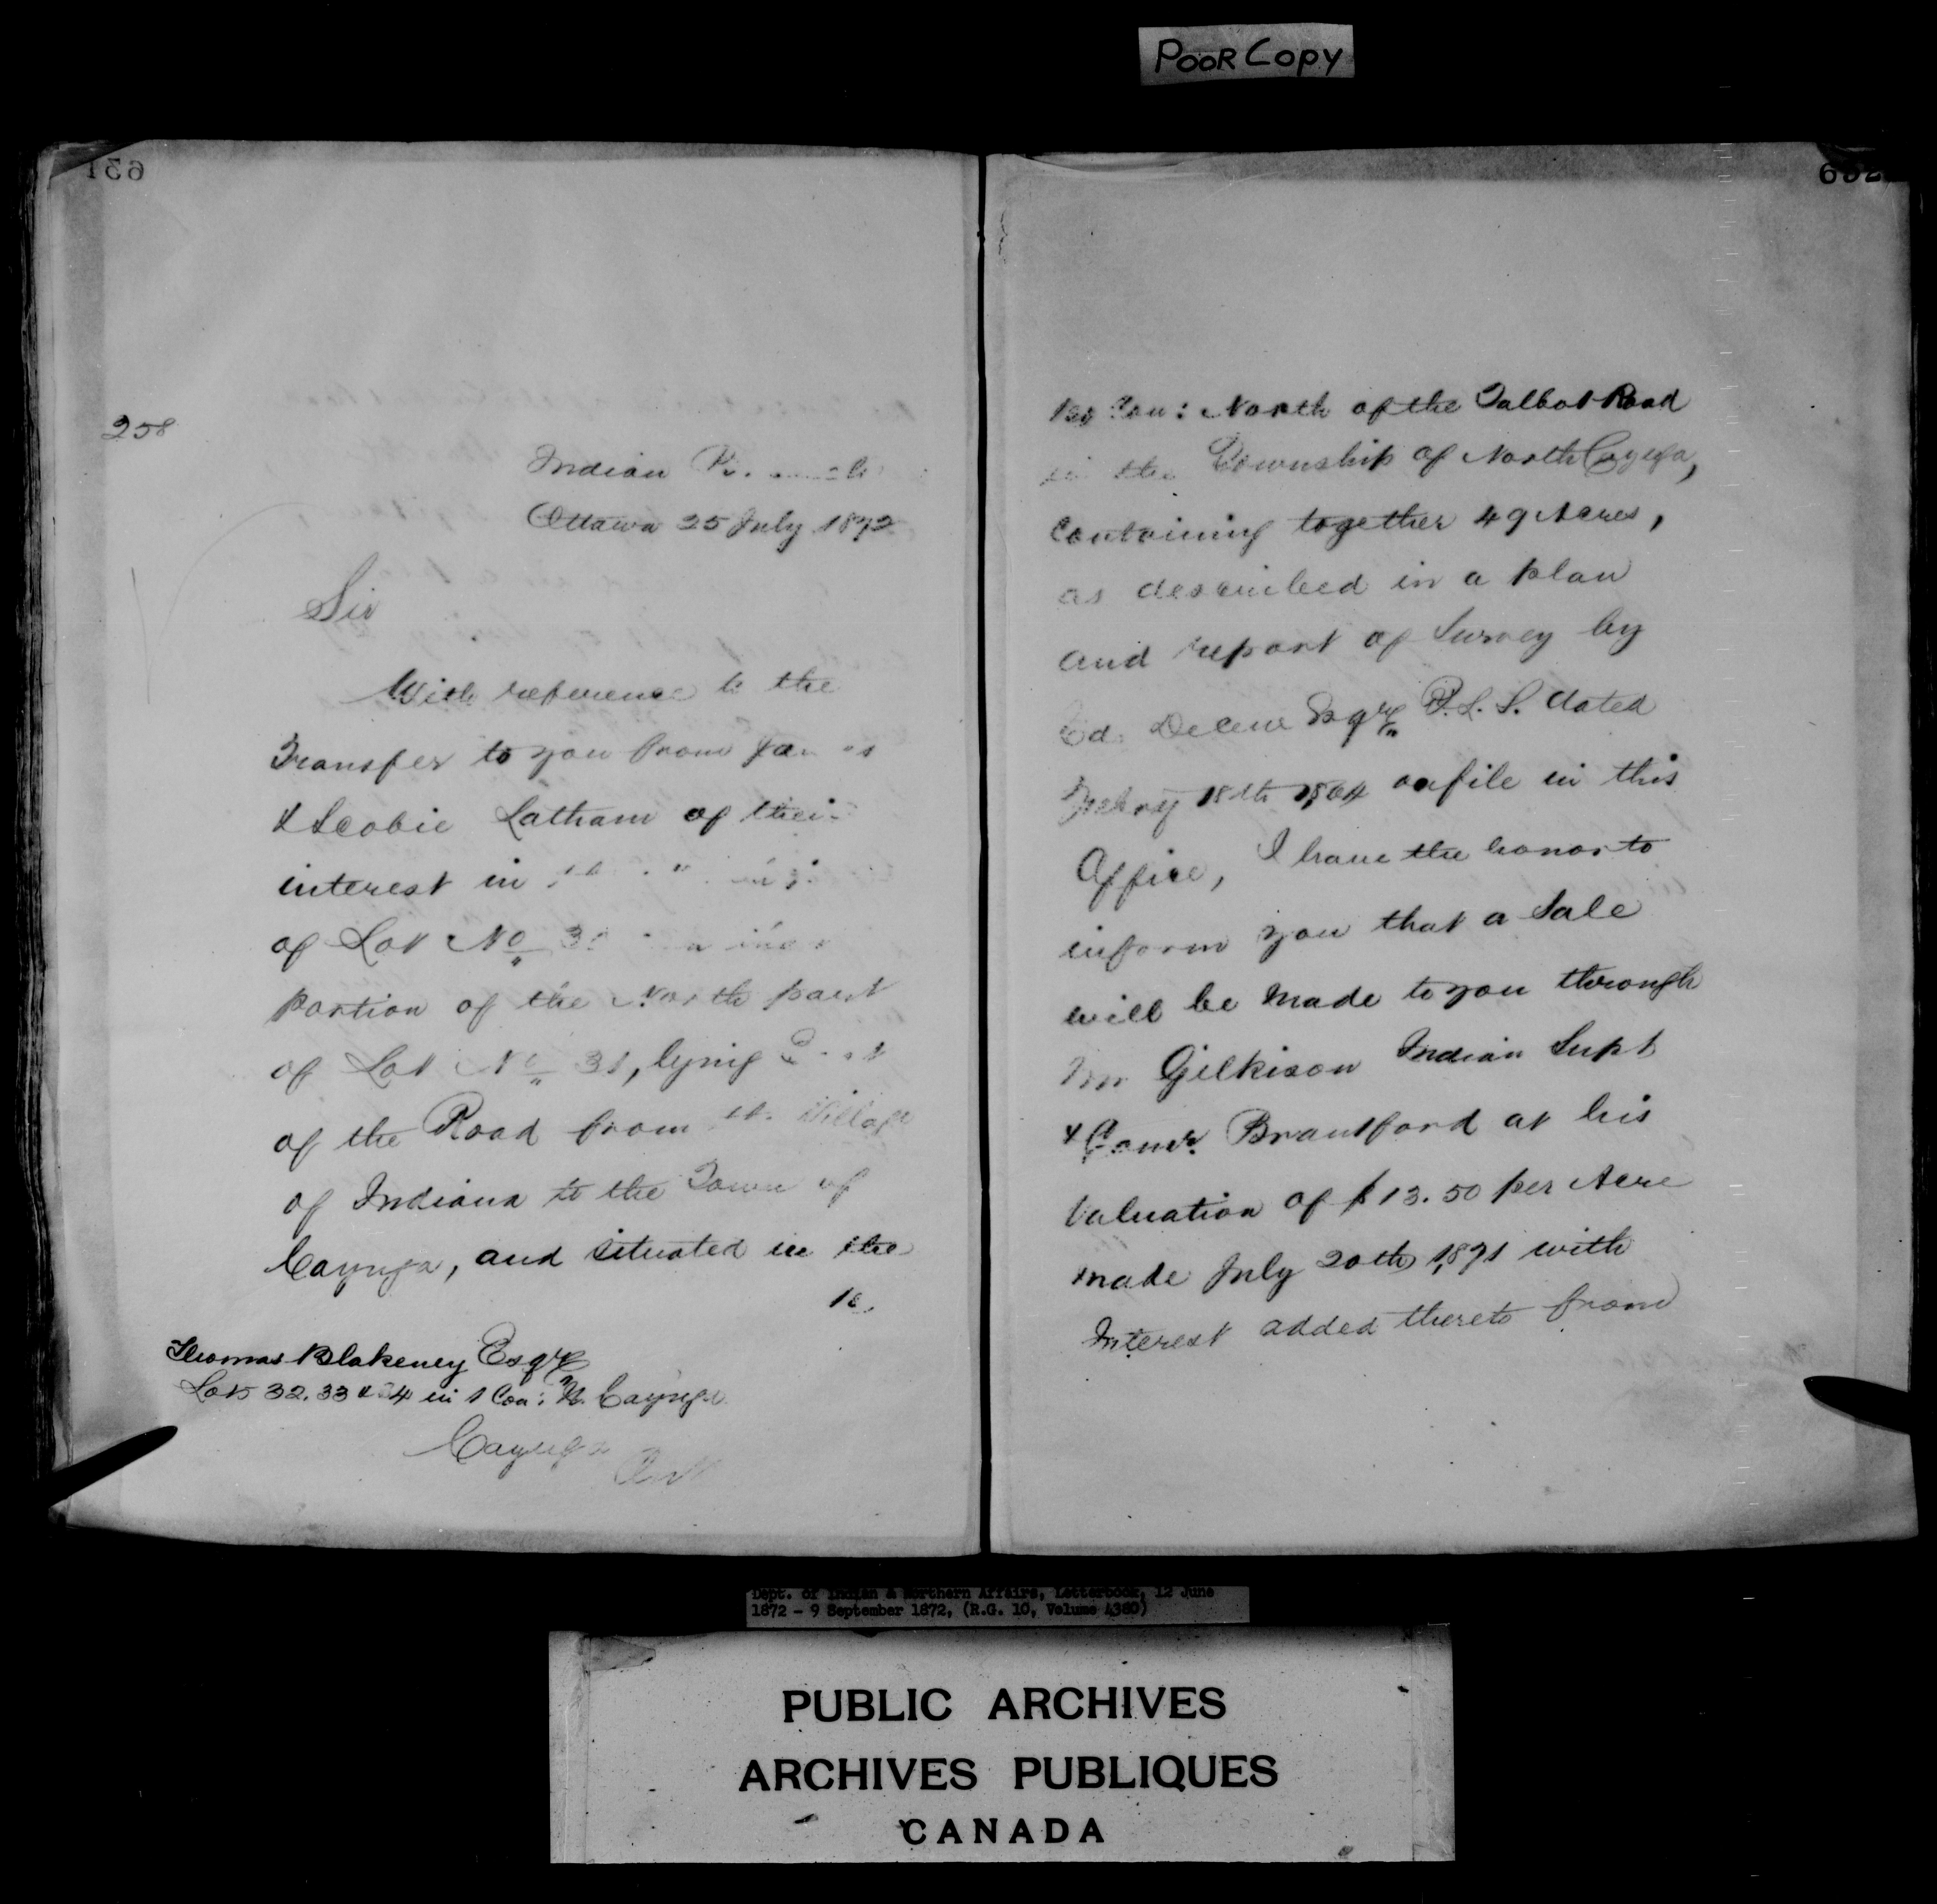 POOR COPY
631
258
Indian
Ottawa 25 July 1872
Sir
With reference to the
Transfer to you from
& Scobie Latham of their
interest in
of Lot No
portion of the North part
of Lot No 31, lying
of the Road from the Village
of Indiana to the Town of
Cayuga, and situated in the
Thomas Blakeney Esqre
Lots 32. 33 & 34 in 1 Con: N. Cayuga
Cayuga
Ont
632
1st Con: North of the Talbot Road
in the Township of North Cayuga,
Containing together 49 Acres,
as described in a plan
and report of Survey by
Ed. Decew Esqre P.L.S. dated
18th 1864 on file in this
Office, I have the honor to
inform you that a Sale
will be made to you through
Mr Gilkison Indian Supt
& Comr. Brantford at his
Valuation of $13.50 per Acre
made July 20th, 1871 with
Interest added thereto from
Dept. of Indian & Northern Affairs, Letterbook, 12 June
1872 - 9 September 1872, (R.G. 10, Volume 4380)
PUBLIC ARCHIVES
ARCHIVES PUBLIQUES
CANADA